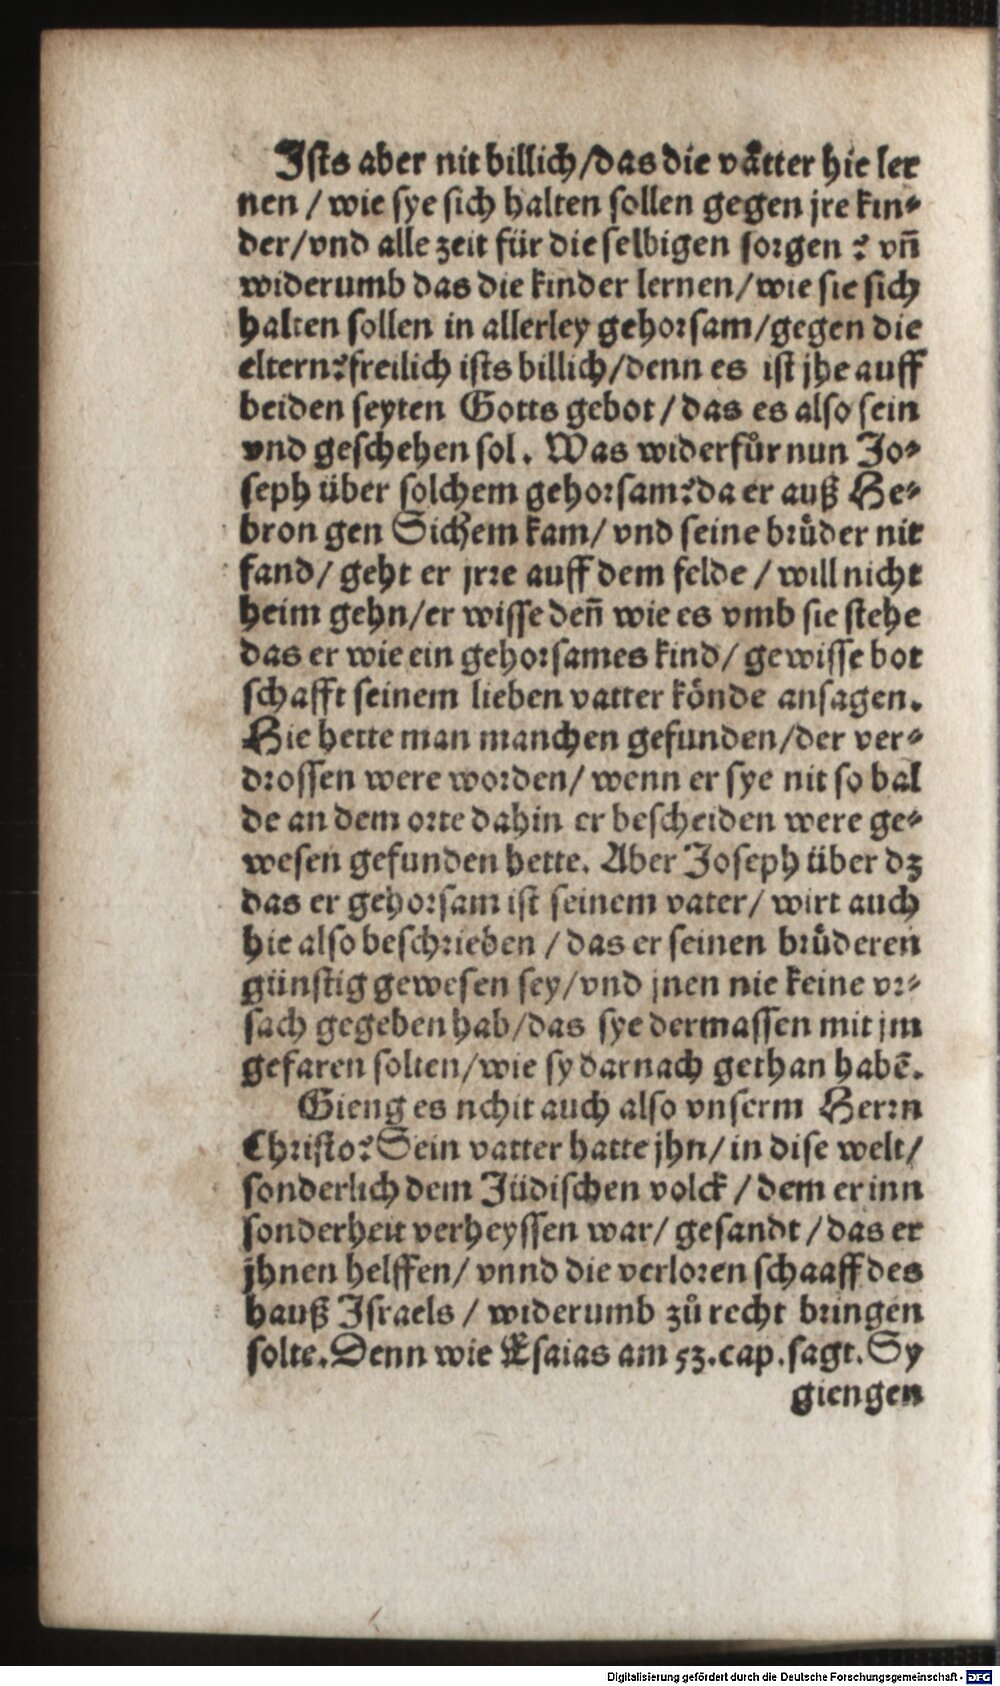 Ists aber nit billich/das die vaͤtter hie ler
nen / wie sye sich halten sollen gegen jre kin⸗
der/vnd alle zeit für die selbigen sorgen ? vñ
widerumb das die kinder lernen/wie sie sich
halten sollen in allerley gehorsam/gegen die
eltern?freilich ists billich/denn es ist jhe auff
beiden seyten Gotts gebot / das es also sein
vnd geschehen sol. Was widerfůr nun Jo⸗
seph über solchem gehorsam?da er auß He⸗
bron gen Sichem kam/ vnd seine bruͤder nit
fand/ geht er jrre auff dem felde / will nicht
heim gehn/er wisse deñ wie es vmb sie stehe
das er wie ein gehorsames kind/ gewisse bot
schafft seinem lieben vatter koͤnde ansagen.
Hie hette man manchen gefunden/der ver⸗
drossen were worden/ wenn er sye nit so bal
de an dem orte dahin er bescheiden were ge⸗
wesen gefunden hette. Aber Joseph über dz
das er gehorsam ist seinem vater/ wirt auch
hie also beschrieben / das er seinen bruͤderen
günstig gewesen sey/vnd jnen nie keine vr⸗
sach gegeben hab/das sye dermassen mit jm
gefaren solten/wie sy darnach gethan habẽ.
Gieng es nchit auch also vnserm Herrn
Christo? Sein vatter hatte jhn/ in dise welt/
sonderlich dem Jüdischen volck / dem er inn
sonderheit verheyssen war/ gesandt / das er
jhnen helffen/ vnnd die verloren schaaff des
hauß Israels / widerumb zů recht bringen
solte. Denn wie Esaias am 53.cap.sagt. Sy
giengen
Digitalisierung gefördert durch die Deutsche Forschungsgemeinschaft - DFG